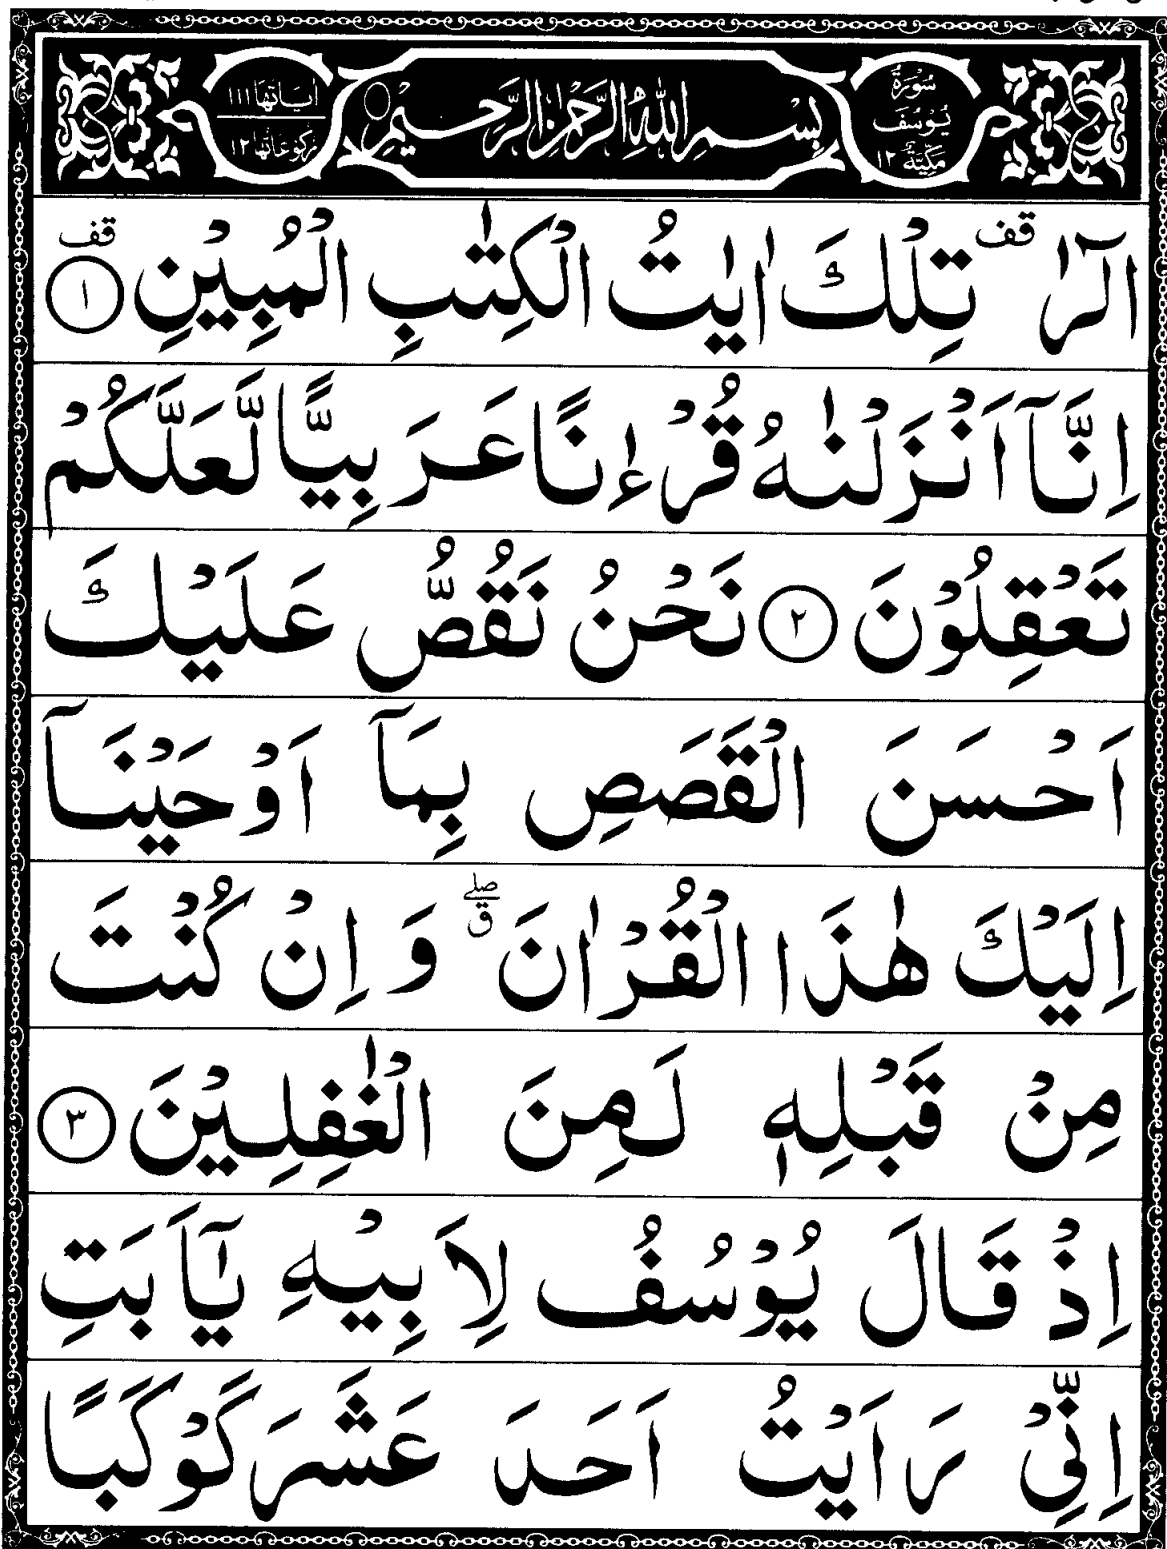 سُوْرَةُ يُوْسُفَ مَكِّيَّةٌ ١٢
بِسْمِ اللّٰهِ الرَّحْمٰنِ الرَّحِيْمِ
اٰيَاتُهَا ١١١
رُكُوْعَاتُهَا ١٢
الٓرٰ قف تِلْكَ اٰيٰتُ الْكِتٰبِ الْمُبِيْنِ ١ قف
اِنَّآ اَنْزَلْنٰهُ قُرْءٰنًا عَرَبِيًّا لَّعَلَّكُمْ
تَعْقِلُوْنَ ٢ نَحْنُ نَقُصُّ عَلَيْكَ
اَحْسَنَ الْقَصَصِ بِمَآ اَوْحَيْنَآ
اِلَيْكَ هٰذَا الْقُرْاٰنَ صلے ق وَ اِنْ كُنْتَ
مِنْ قَبْلِهٖ لَمِنَ الْغٰفِلِيْنَ ٣
اِذْ قَالَ يُوْسُفُ لِاَبِيْهِ يٰٓاَبَتِ
اِنِّيْ رَاَيْتُ اَحَدَ عَشَرَ كَوْكَبًا